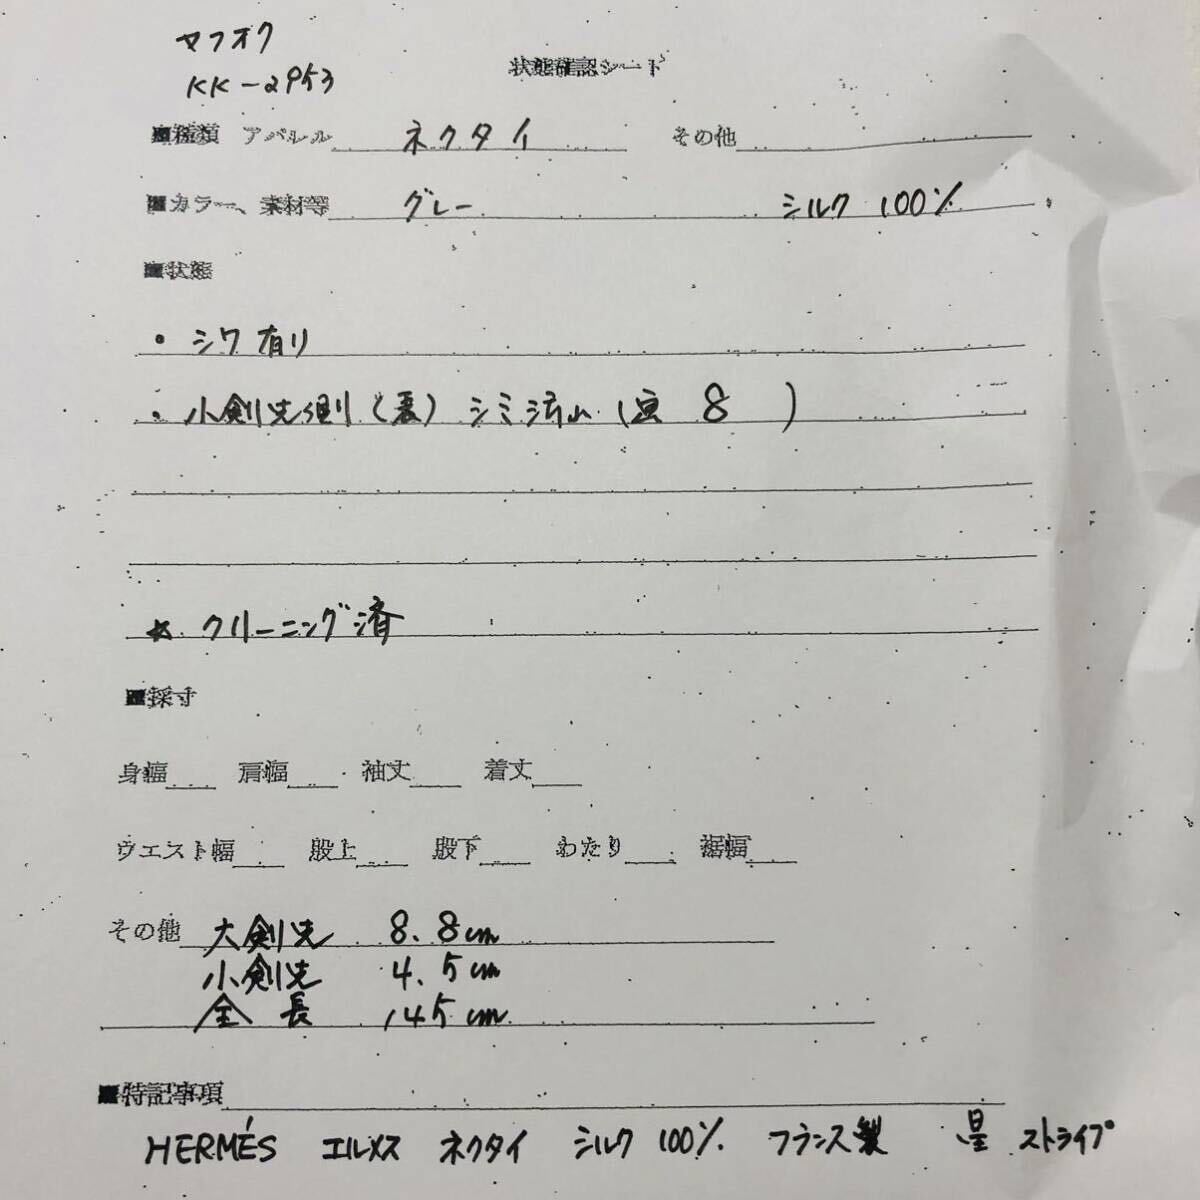 ヤフオク
KK-2953
状態確認シート
■種類 アパレル ネクタイ その他
■カラー、素材等 グレー シルク 100%
■状態
・シワ有り
・小剣先側(裏)シミ汚れ(画 8 )
★クリーニング済
■採寸
身幅 肩幅 袖丈 着丈
ウエスト幅 股上 股下 わたり 裾幅
その他 大剣先 8.8cm
小剣先 4.5cm
全長 145cm
■特記事項
HERMÉS エルメス ネクタイ シルク 100% フランス製 星 ストライプ